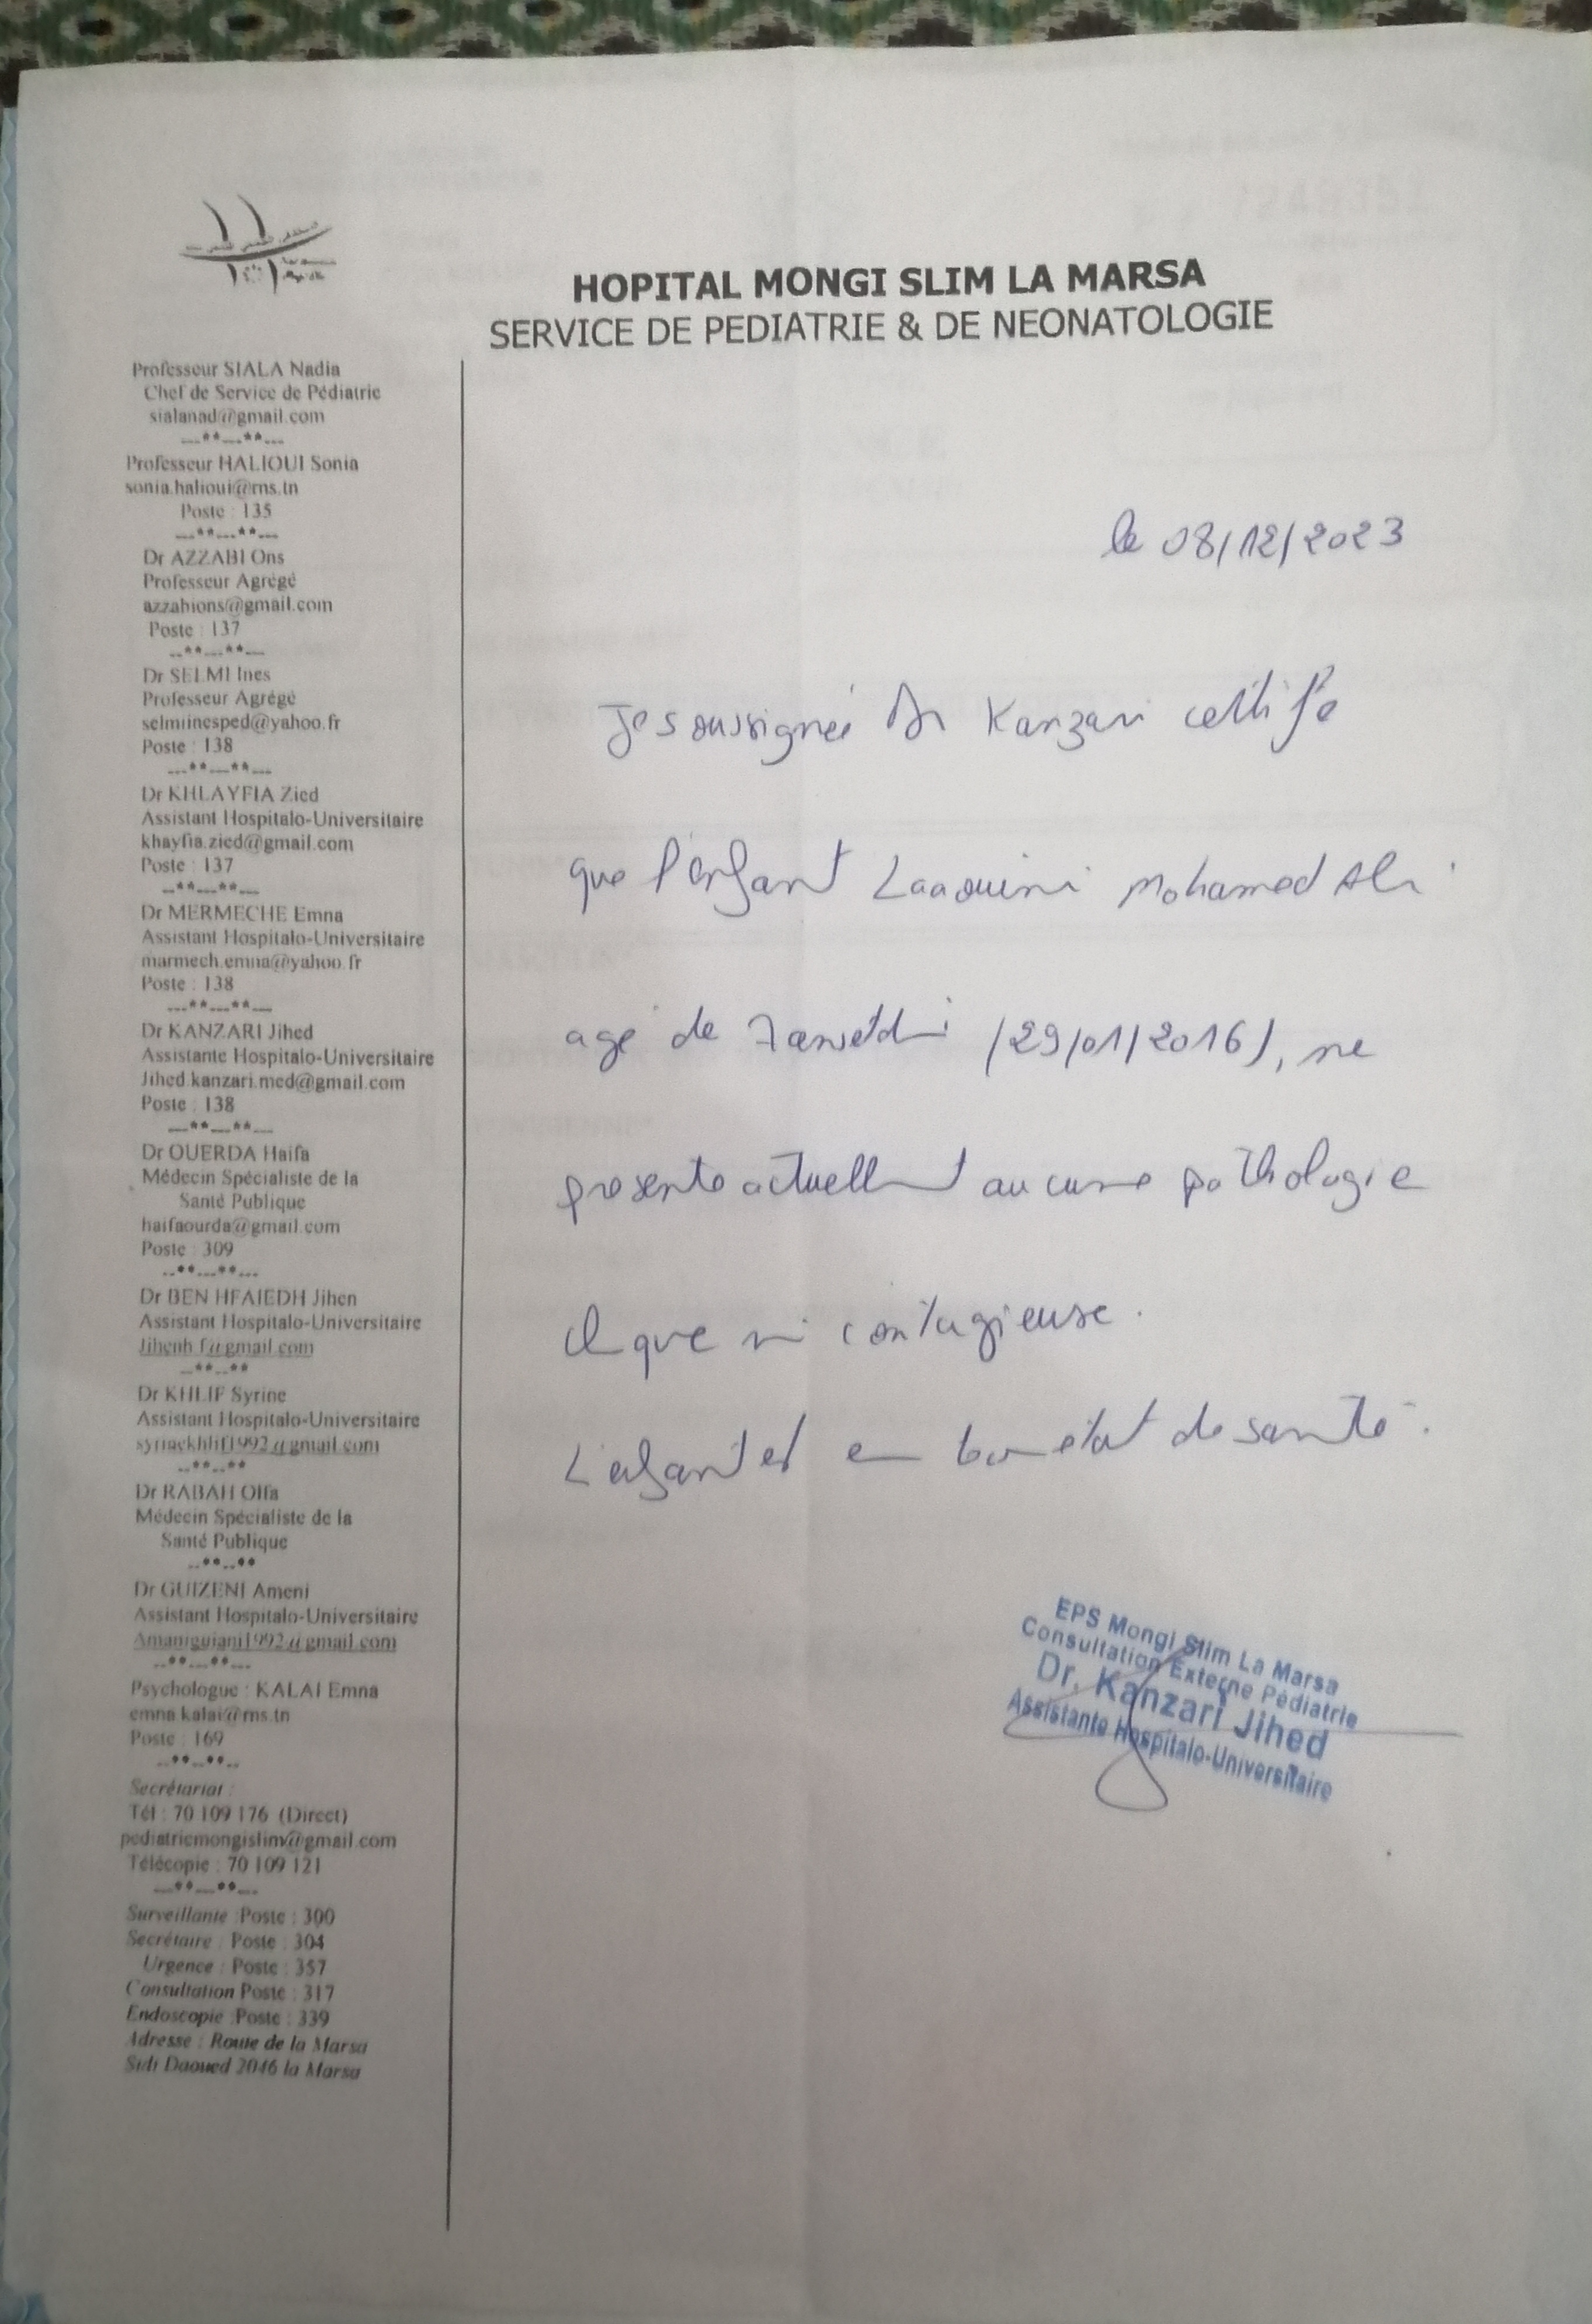 HOPITAL MONGI SLIM LA MARSA
SERVICE DE PEDIATRIE & DE NEONATOLOGIE
Professeur SIALA Nadia
Chef de Service de Pédiatrie
sialanad@gmail.com
---**---**---
Professeur HALIOUI Sonia
sonia.halioui@rns.tn
Poste : 135
---**---**---
Dr AZZABI Ons
Professeur Agrégé
azzabions@gmail.com
Poste : 137
--**---**---
Dr SELMI Ines
Professeur Agrégé
selmiinesped@yahoo.fr
Poste : 138
---**---**---
Dr KHLAYFIA Zied
Assistant Hospitalo-Universitaire
khayfia.zied@gmail.com
Poste : 137
---**---**---
Dr MERMECHE Emna
Assistant Hospitalo-Universitaire
marmech.emna@yahoo.fr
Poste : 138
---**---**---
Dr KANZARI Jihed
Assistante Hospitalo-Universitaire
Jihed.kanzari.med@gmail.com
Poste : 138
---**---**---
Dr OUERDA Haifa
Médecin Spécialiste de la
Santé Publique
haifaourda@gmail.com
Poste : 309
--**---**---
Dr BEN HFAIEDH Jihen
Assistant Hospitalo-Universitaire
Jihenh.f@gmail.com
--**--**
Dr KHLIF Syrine
Assistant Hospitalo-Universitaire
syrinekhlif1992@gmail.com
--**--**
Dr RABAH Olfa
Médecin Spécialiste de la
Santé Publique
--**--**
Dr GUIZENI Ameni
Assistant Hospitalo-Universitaire
Amaniguiani1992@gmail.com
--**---**---
Psychologue : KALAI Emna
emna.kalai@rns.tn
Poste : 169
---**--**--
Secrétariat :
Tél : 70 109 176 (Direct)
pediatriemongislim@gmail.com
Télécopie : 70 109 121
---**---**---
Surveillante :Poste : 300
Secrétaire : Poste : 304
Urgence : Poste : 357
Consultation Poste : 317
Endoscopie :Poste : 339
Adresse : Route de la Marsa
Sidi Daoued 2046 la Marsa
le 08/12/2023
Je soussignée Dr Kanzari certifie
que l'enfant Laaouini Mohamed Ali
agé de 7 ans et di (29/01/2016), ne
presente actuellt aucune pathologie
que ni contagieuse.
L'enfant est en bon etat de santé.
EPS Mongi Slim La Marsa
Consultation Externe Pédiatrie
Dr. Kanzari Jihed
Assistante Hospitalo-Universitaire